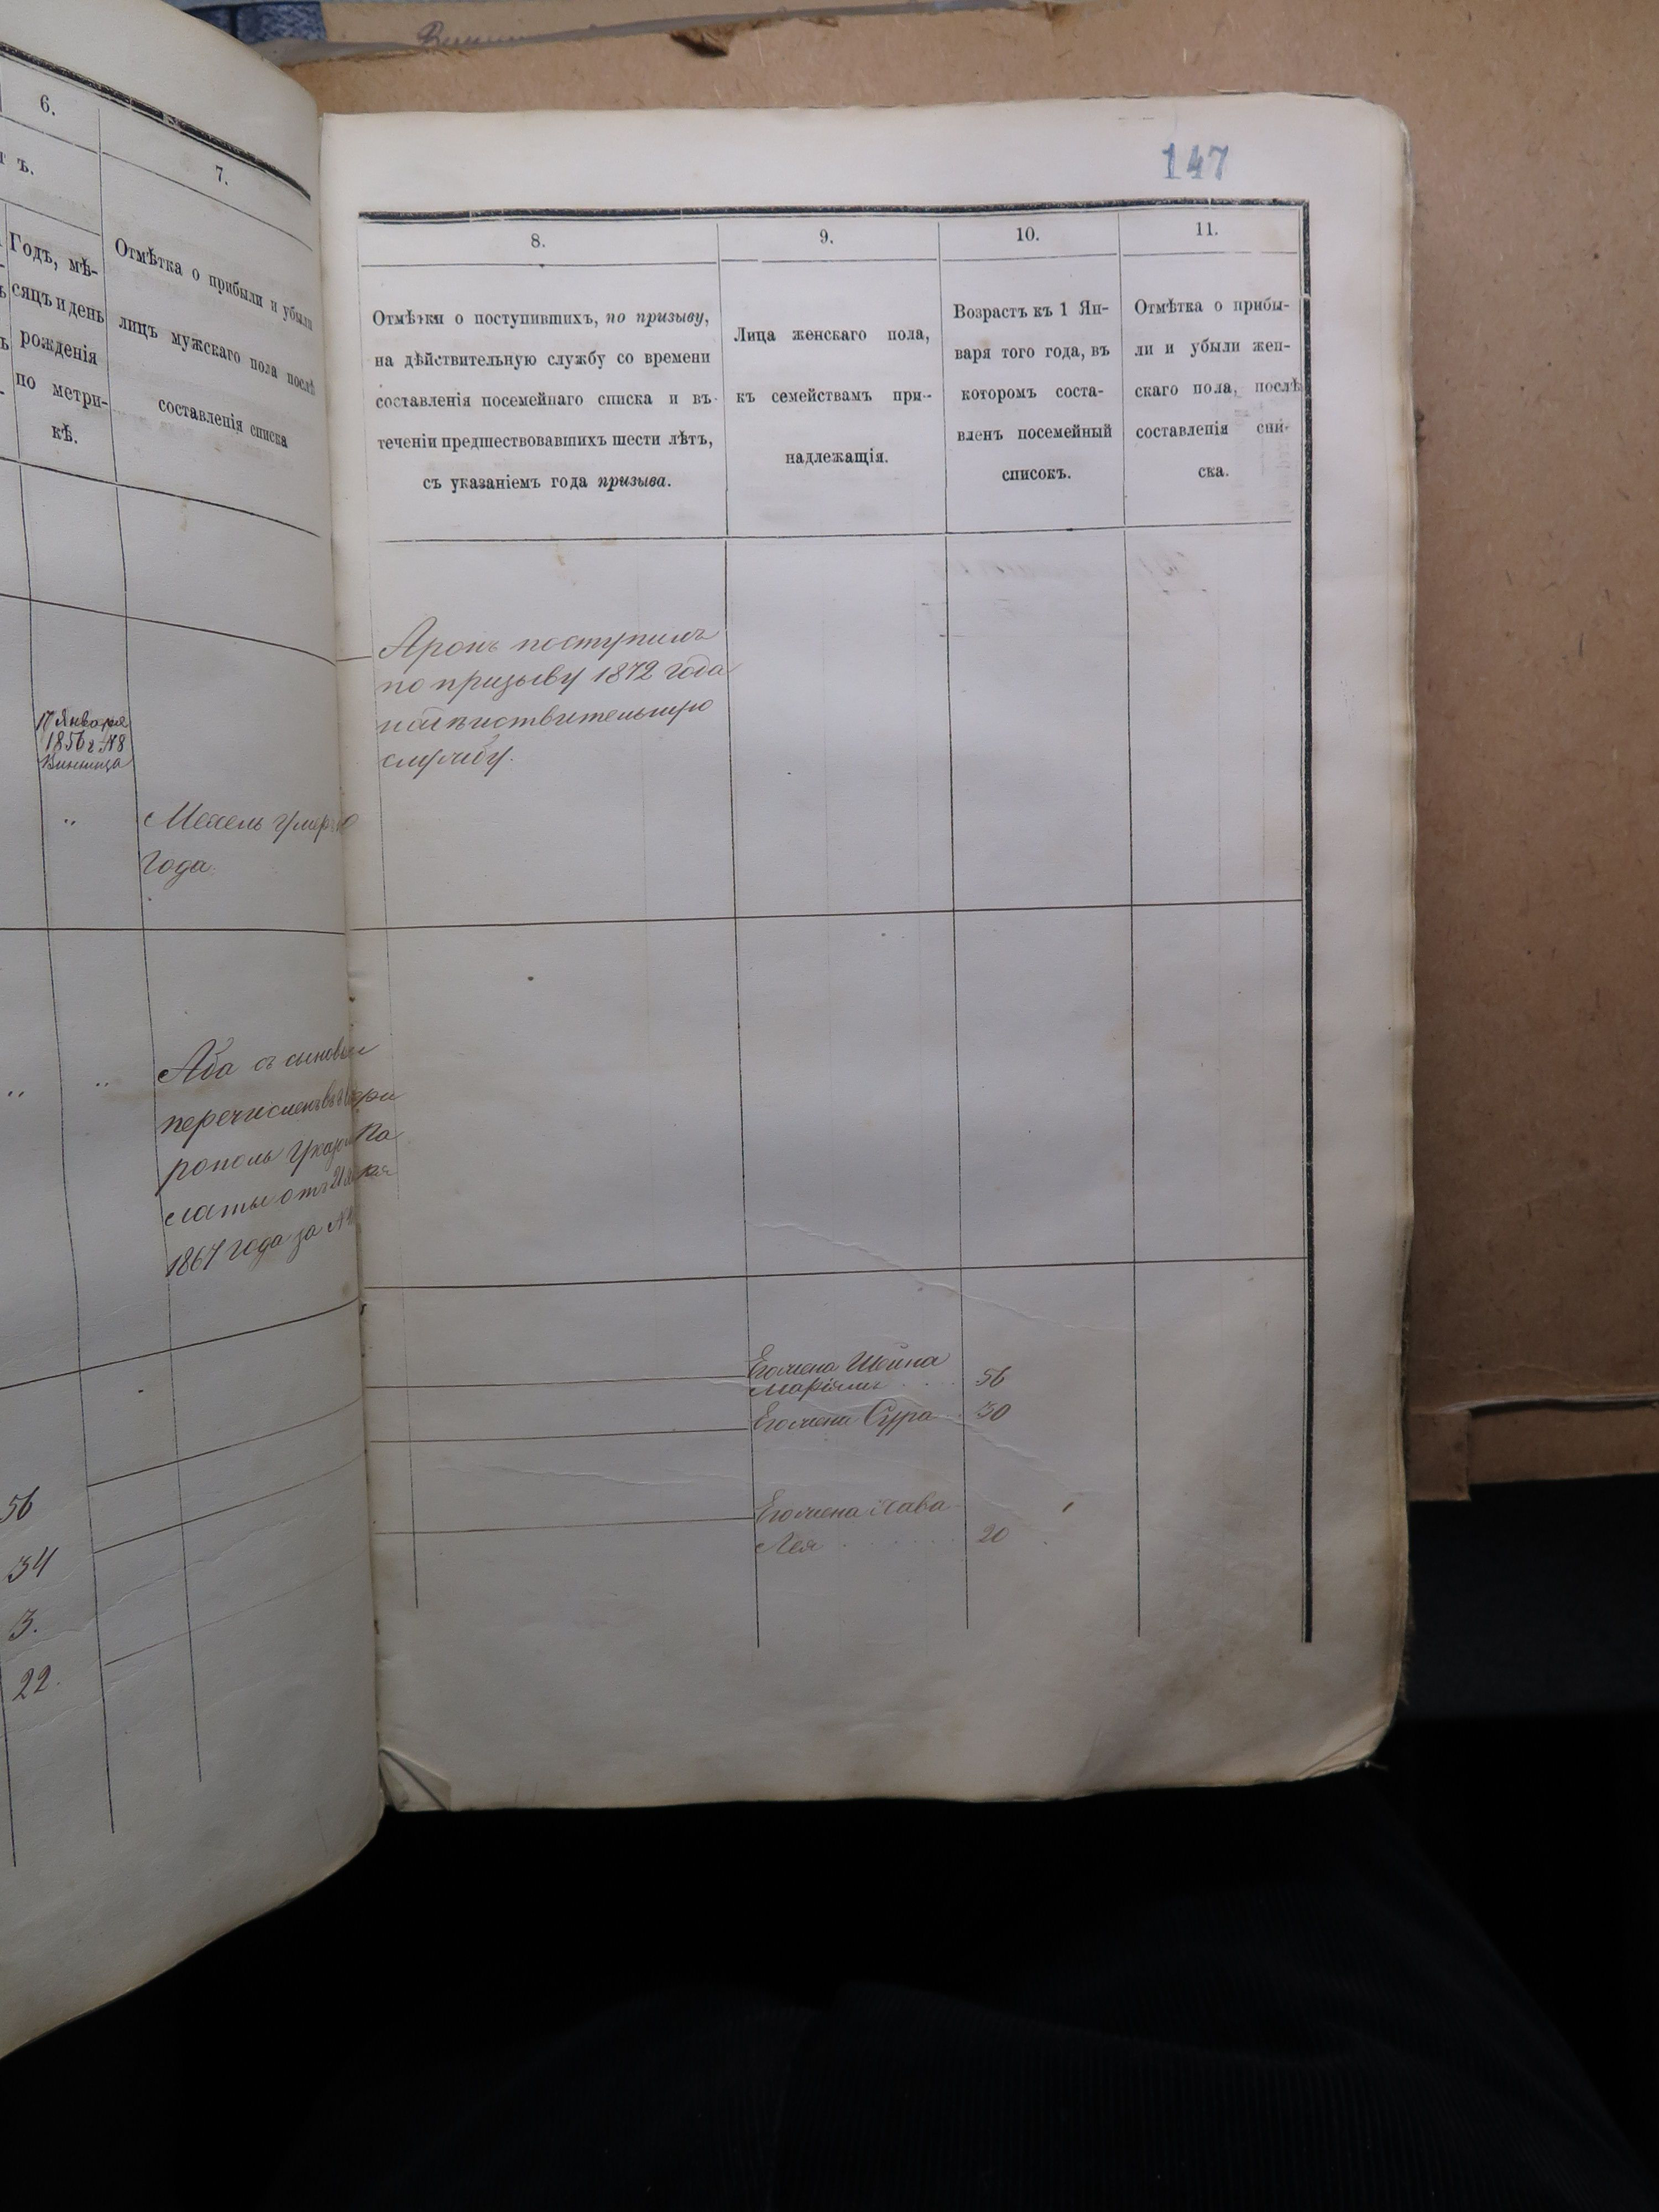 6.
ъ.
7.
Годъ, мѣ-
сяцъ и день
рожденія
по метри-
кѣ.
Отмѣтка о прибыли и убыли
лицъ мужскаго пола послѣ
составленія списка
17 Января
1856 г. №8
Винница
Мехель умеръ
года.
Аба съ сыновьями
перечисленъ въ
рополь указомъ Па
латы отъ
1867 года за №
56
34
3.
22.
147
8.
9.
10.
11.
Отмѣтки о поступившихъ, по призыву,
на дѣйствительную службу со времени
составленія посемейнаго списка и въ
теченіи предшествовавшихъ шести лѣтъ,
съ указаніемъ года призыва.
Лица женскаго пола,
къ семействамъ при-
надлежащія.
Возрастъ къ 1 Ян-
варя того года, въ
которомъ соста-
вленъ посемейный
списокъ.
Отмѣтка о прибы-
ли и убыли жен-
скаго пола, послѣ
составленія спи-
ска.
Аронъ поступилъ
по призыву 1872 года
на дѣйствительную
службу.
Его жена Шейна
Маріямъ 56
Его жена Сура 30
Его жена Хава
Лея 20